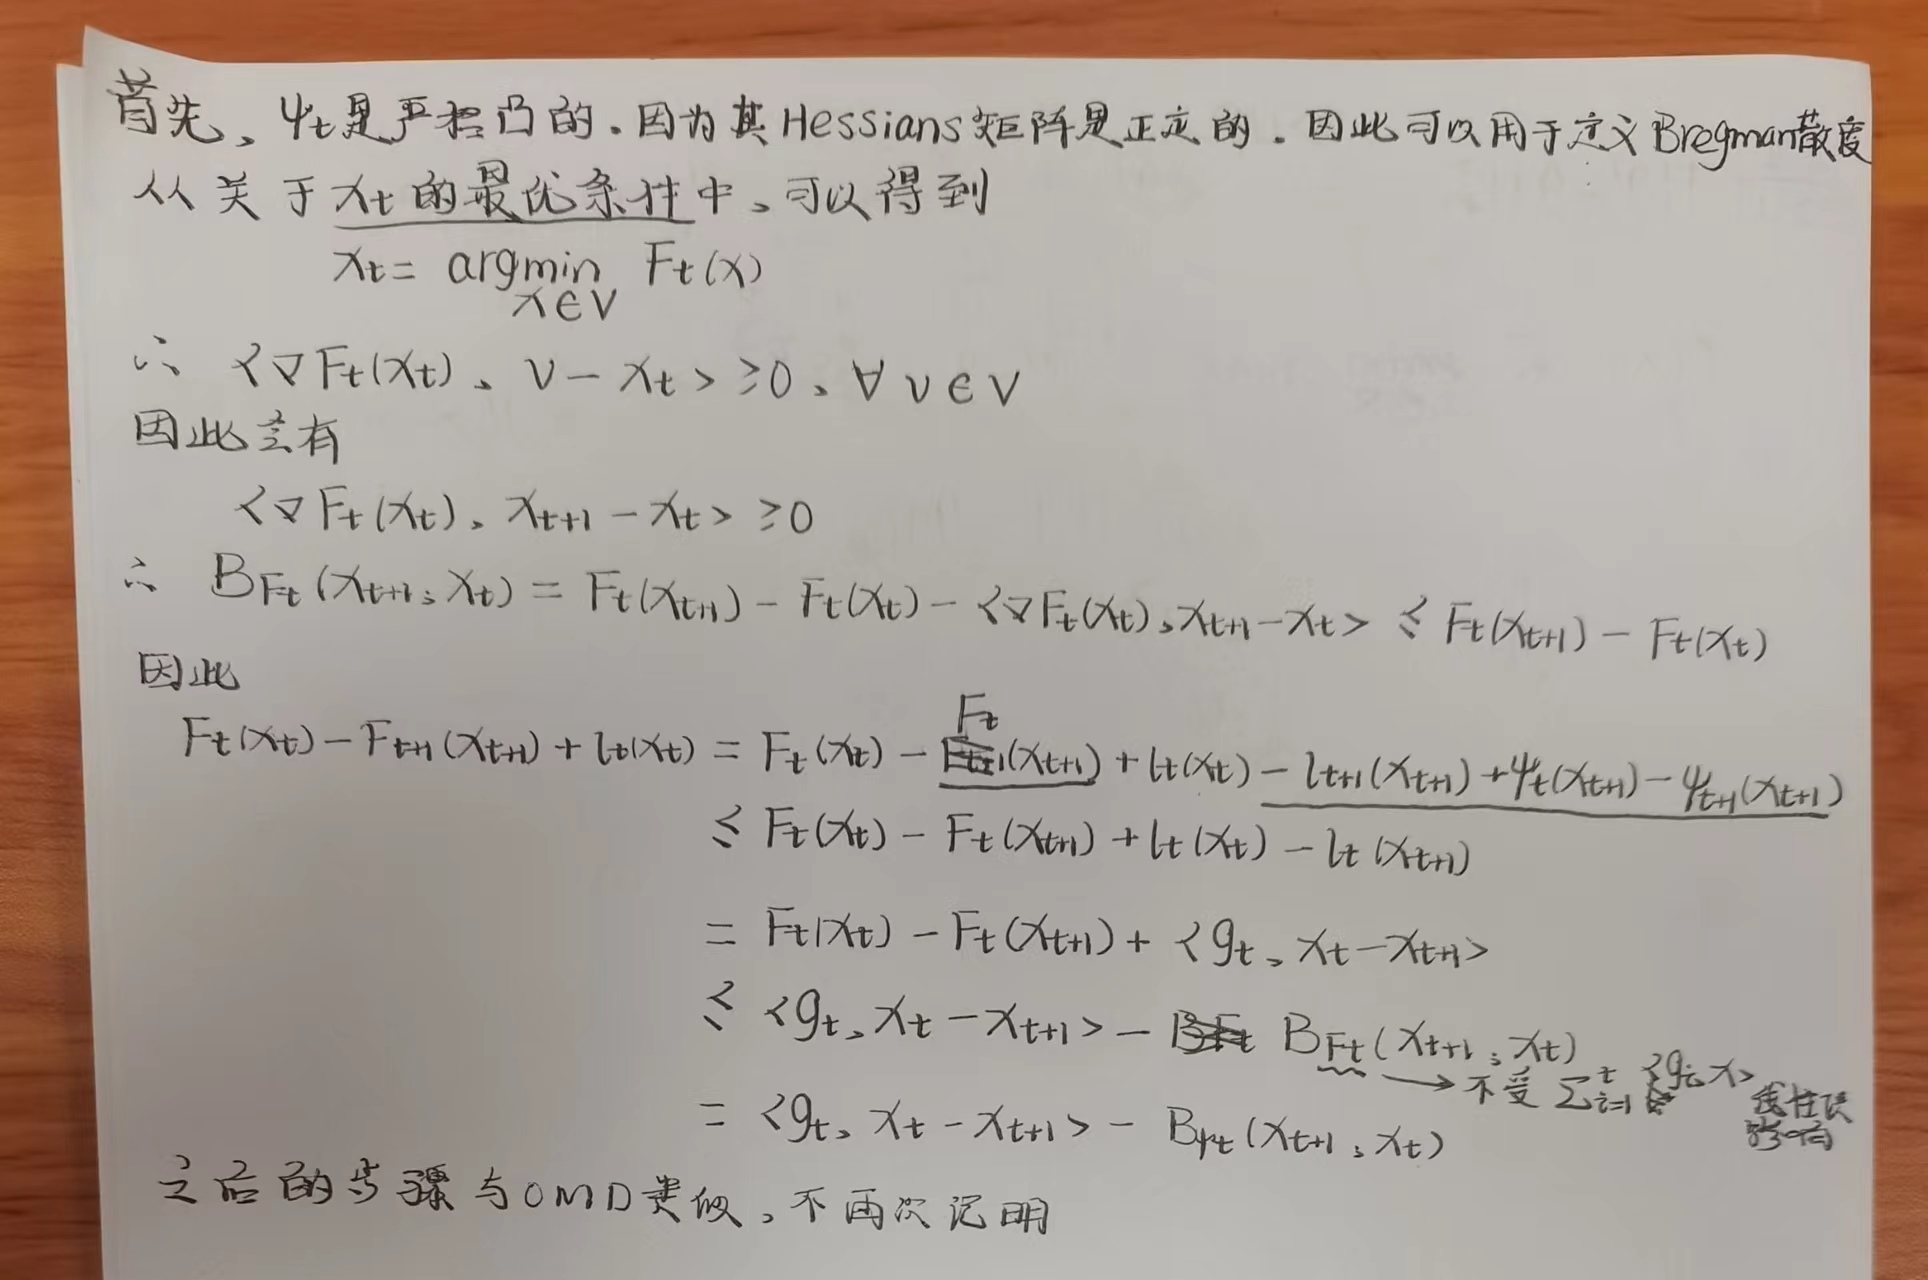 首先、ψt是严格凸的.因为其Hessians矩阵是正定的.因此可以用于定义Bregman散度
从关于xt的最优条件中、可以得到
xt= argmin Ft(x)
x∈V
∴ <∇Ft(xt)、v-xt> ≥0、∀v∈V
因此会有
<∇Ft(xt)、xt+1-xt> ≥0
∴ BFt(xt+1;xt) = Ft(xt+1) - Ft(xt) - <∇Ft(xt)、xt+1-xt> ≤ Ft(xt+1) - Ft(xt)
因此
Ft
Ft(xt)-Ft+1(xt+1)+lt(xt) = Ft(xt) - (xt+1) + lt(xt) - lt+1(xt+1) + ψt(xt+1) - ψt+1(xt+1)
≤ Ft(xt) - Ft(xt+1) + lt(xt) - lt(xt+1)
= Ft(xt) - Ft(xt+1) + <gt、xt-xt+1>
≤ <gt、xt-xt+1> - BFt(xt+1;xt)
→不受 Σᵗi=1 <gi、x> 线性项
影响
= <gt、xt-xt+1> - Bψt(xt+1;xt)
之后的步骤与OMD类似、不再次记明